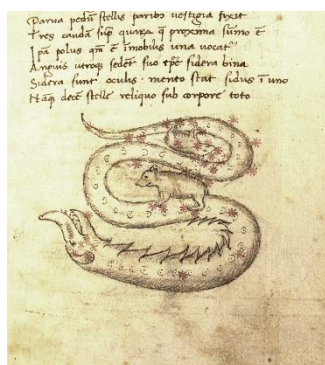 Parua pedū stellis paribꝰ uestigia fixit
Tres caudā suꝑ quarū q̄ proxima sūmo ē
Ipā polus qm̄ ē īmobilis una uocatᷣ
Anguis utroqꝫ sedēt suo tꝑe sidera bina
Sidera sunt oculis · mento stat sidus ī uno
Nāqꝫ decē stelle reliquo sub corpore toto